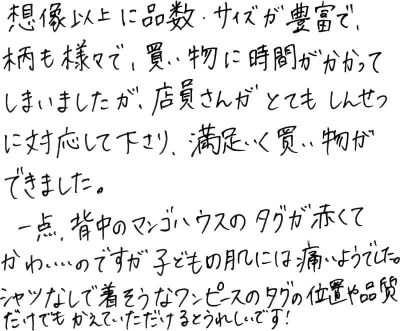 想像以上に品数・サイズが豊富で、
柄も様々で、買い物に時間がかかって
しまいましたが、店員さんがとてもしんせつ
に対応して下さり、満足いく買い物が
できました。
一点、背中のマンゴハウスのタグが赤くて
かわ、、、、のですが子どもの肌には痛いようでした。
シャツなしで着そうなワンピースのタグの位置や品質
だけでもかえていただけるとうれしいです!